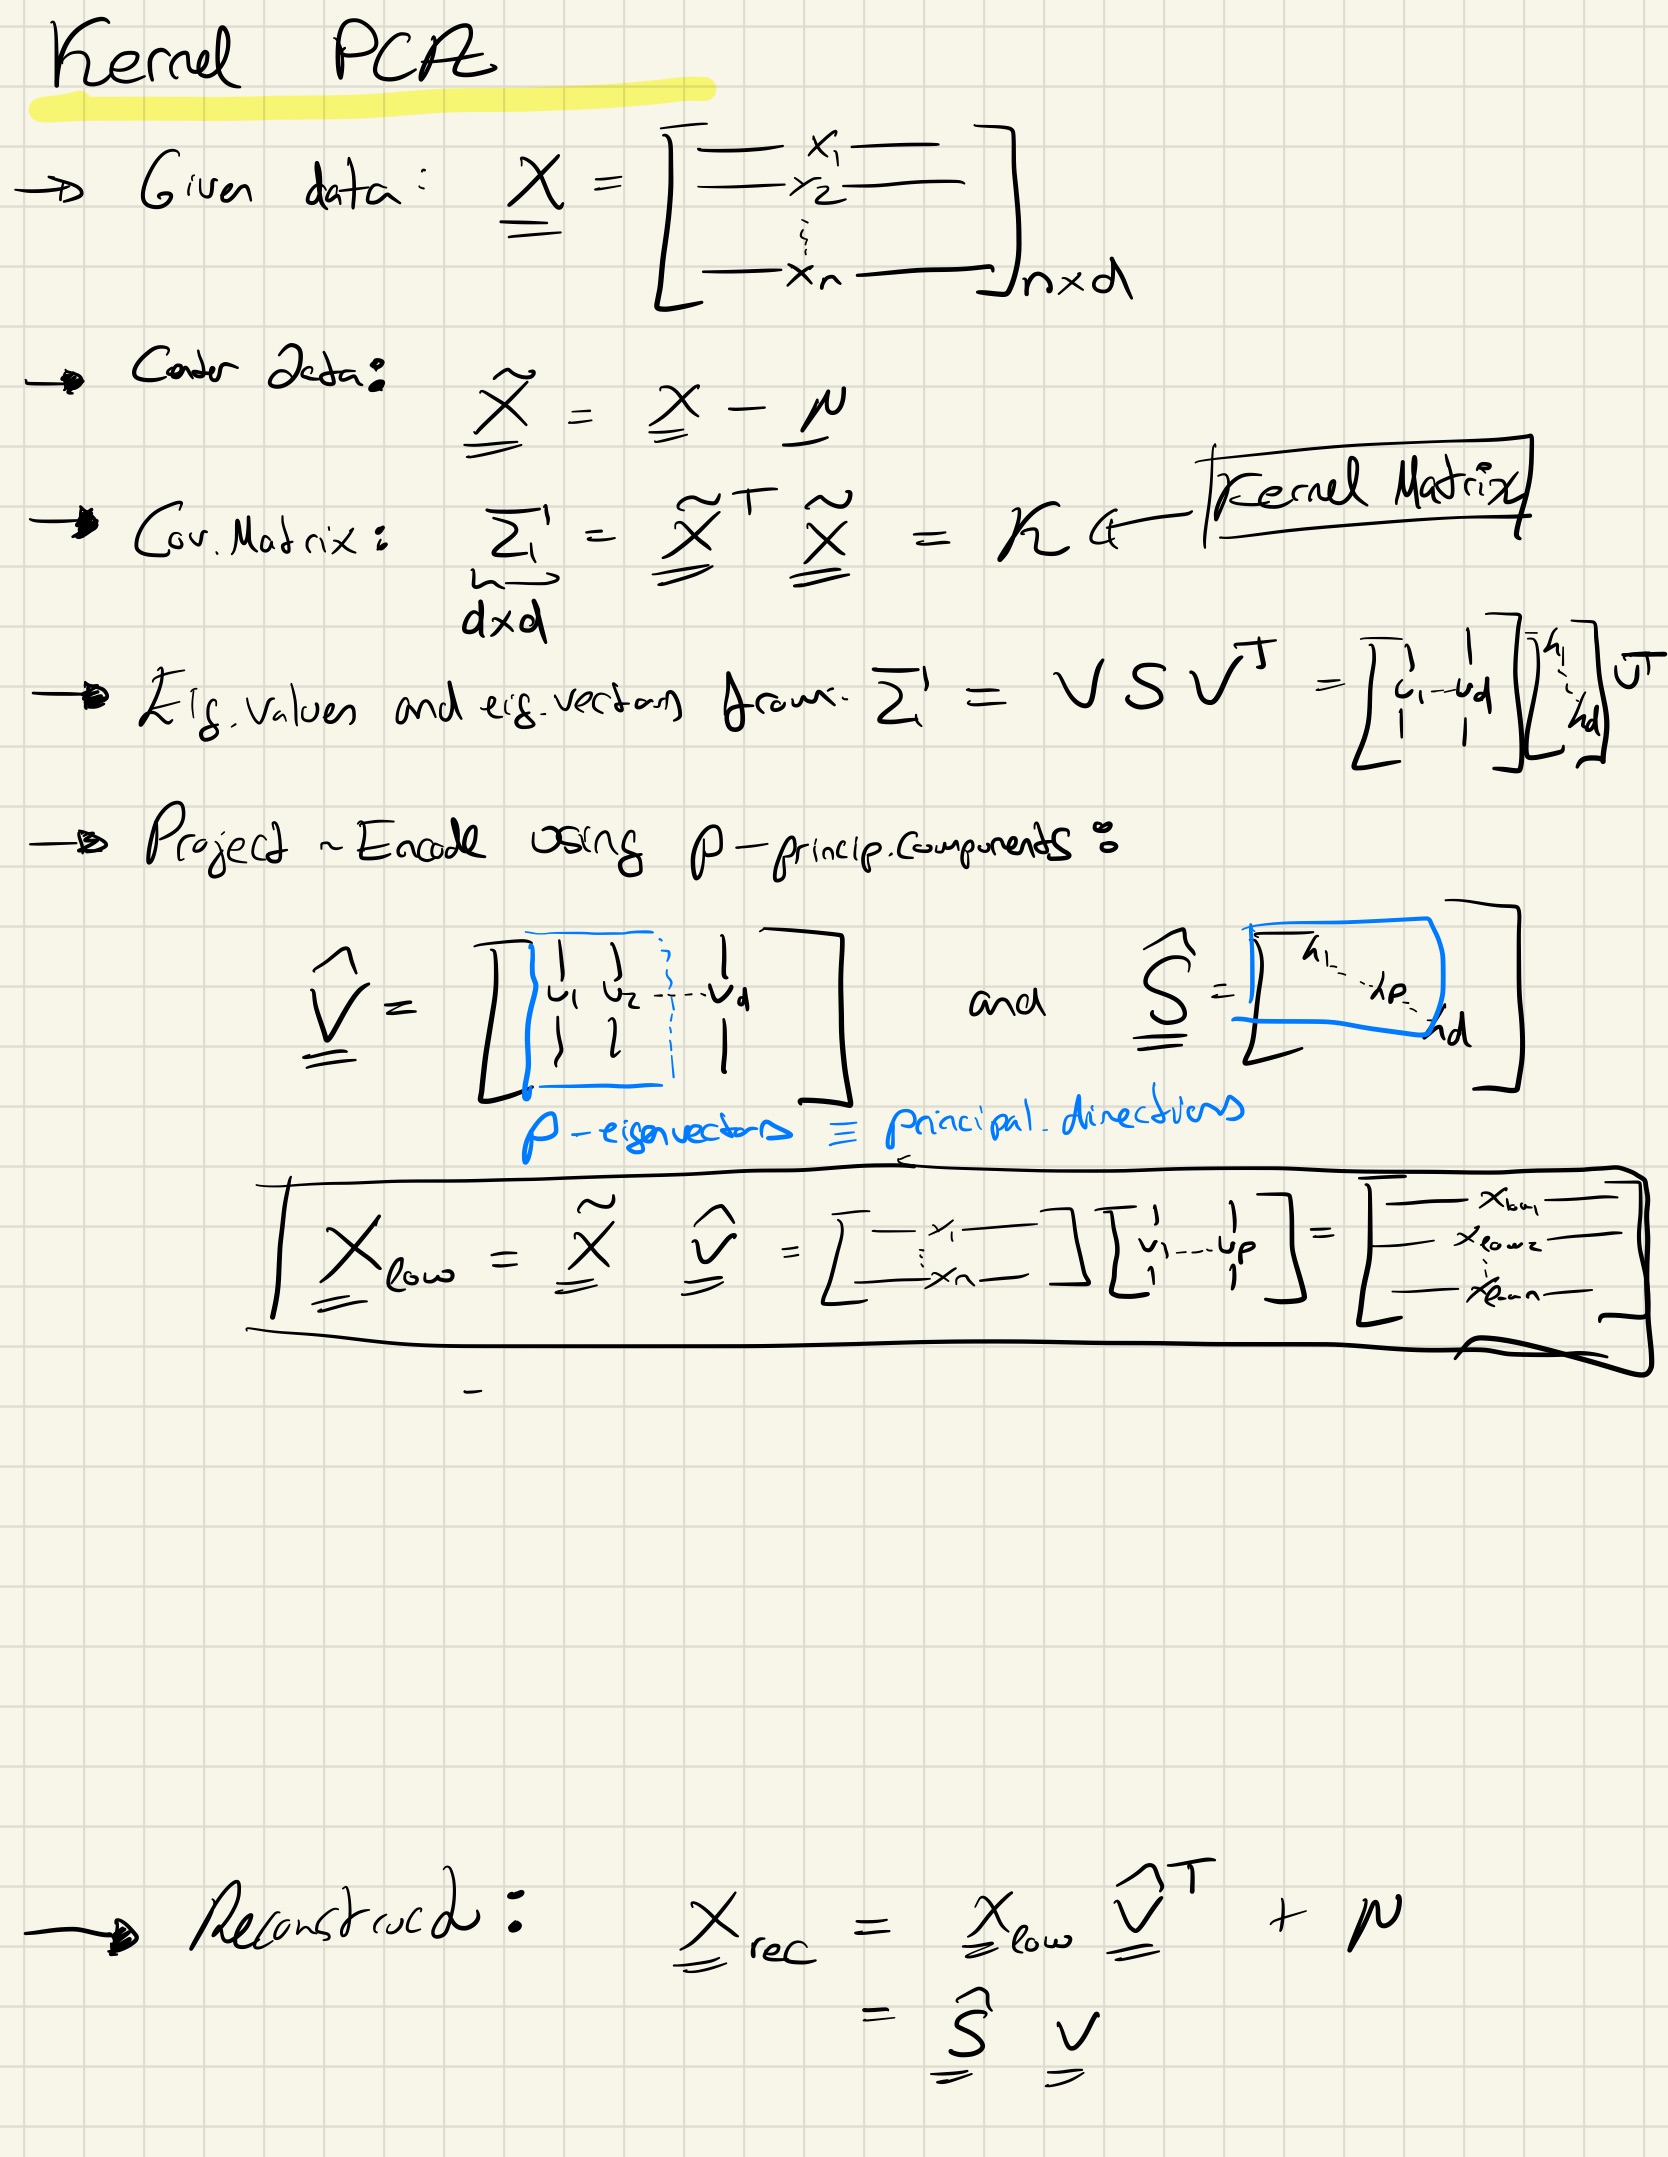 Kernel PCA
→ Given data: X = [ — x₁ — ; — x₂ — ; ⋮ ; — xₙ — ] n×d
→ Center Data: X̃ = X − μ
→ Cov. Matrix: Σ = X̃ᵀ X̃ = K ← Kernel Matrix
d×d
→ Eig. values and eig. vectors from: Σ = V S Vᵀ = [ v₁ -- v_d ] [ λ₁ ⋱ λ_d ] Vᵀ
→ Project ~ Encode using p – princip. components:
V̂ = [ v₁ v₂ ---- v_d ] and Ŝ = [ λ₁ -- λp -- λd ]
p – eigenvectors ≡ principal directions
X_low = X̃ V̂ = [ — x₁ — ; ⋮ ; — xₙ — ] [ v₁ ---- v_p ] = [ — x_low₁ — ; — x_low₂ — ; ⋮ ; — x_low n — ]
→ Reconstruct: X_rec = X_low V̂ᵀ + μ
= Ŝ V